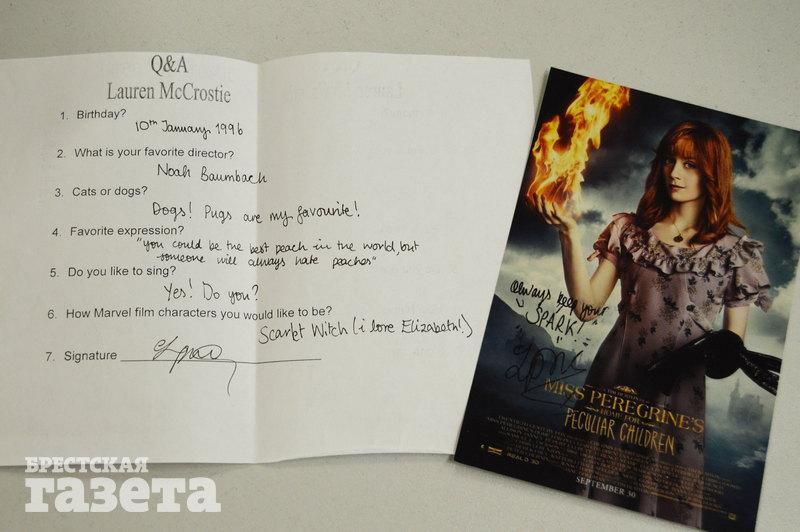 Q&A
Lauren McCrostie
1. Birthday?
10th January 1996
2. What is your favorite director?
Noah Baumbach
3. Cats or dogs?
Dogs! Pugs are my favourite!
4. Favorite expression?
"you could be the best peach in the world, but
someone will always hate peaches"
5. Do you like to sing?
Yes! Do you?
6. How Marvel film characters you would like to be?
Scarlet Witch (i love Elizabeth!)
7. Signature
always keep your
"SPARK!"
MISS PEREGRINE'S
HOME FOR
PECULIAR CHILDREN
REAL D 3D
SEPTEMBER 30
БРЕСТСКАЯ
газета